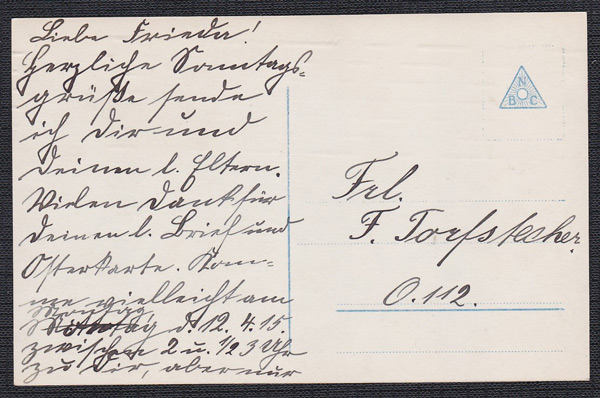 Liebe Frieda!
Herzliche Sonntags-
grüße sende
ich Dir und
Deinen l. Eltern.
Vielen Dank für
Deinen l. Brief und
Osterkarte. Kom-
me vielleicht am
Montag
d. 12. 4. 15.
zwischen 2 u. 1/2 3 Uhr
zu Dir, aber nur
N
B C
Frl.
F. Torfstecher
O. 112.